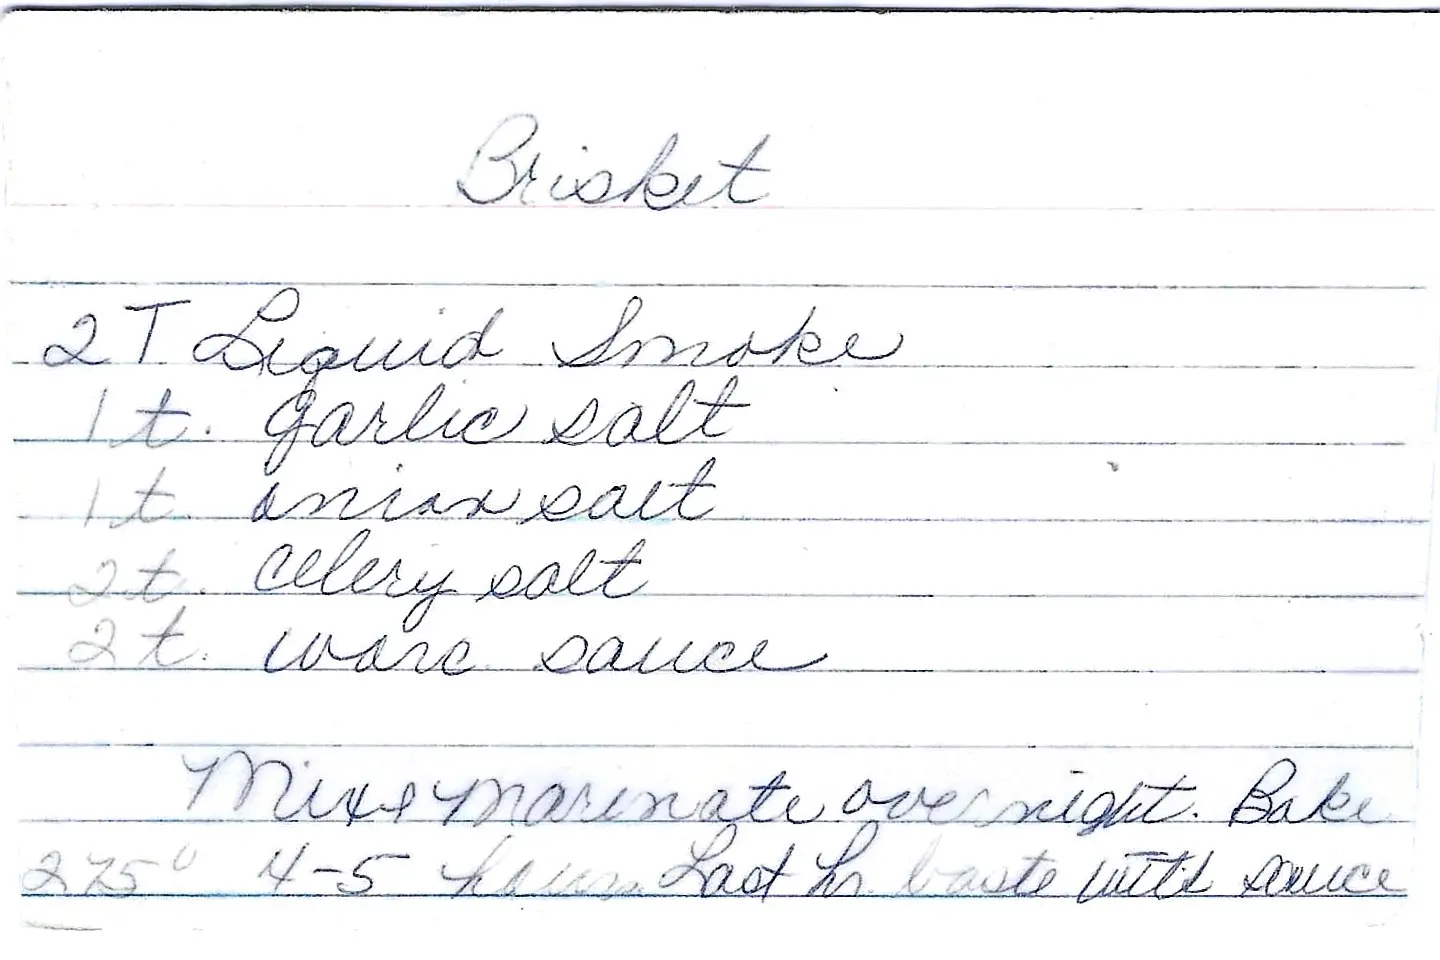 Brisket
2 T Liquid Smoke
1 t. garlic salt
1 t. onion salt
2 t. celery salt
2 t. worc sauce
Mix & marinate overnight. Bake
275° 4-5 hours Last hr. baste with sauce